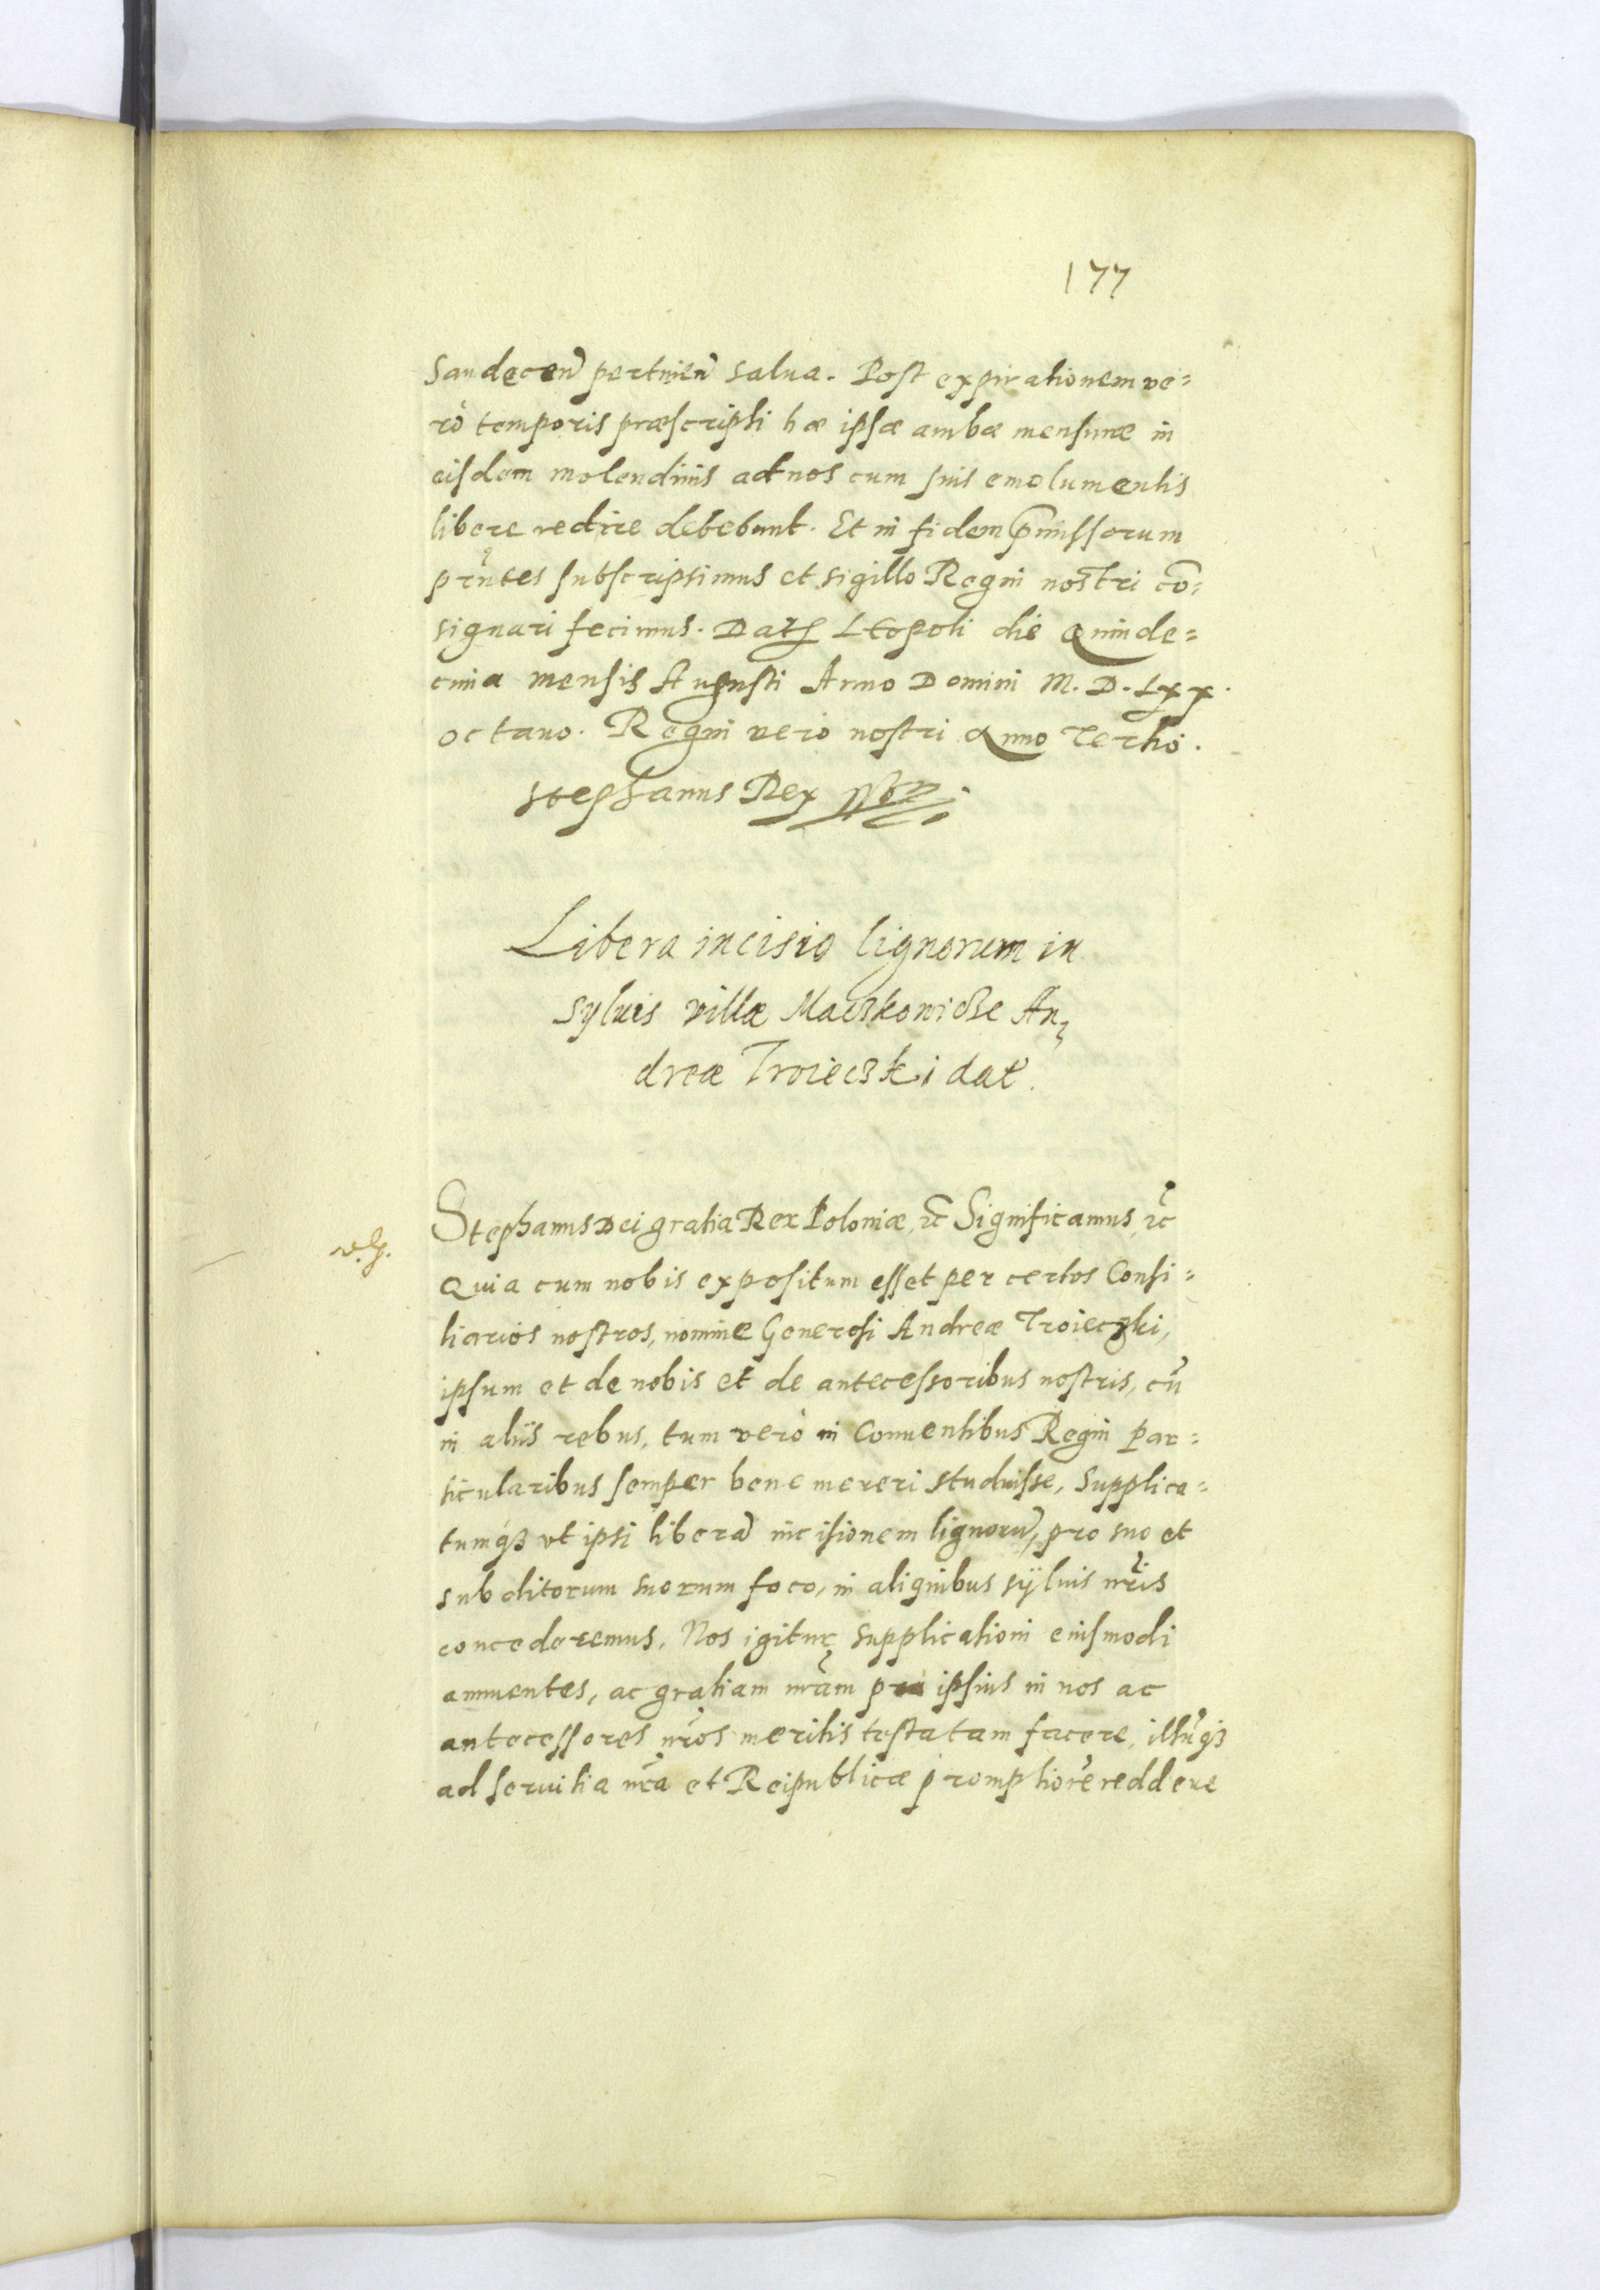 177
Sandecen̄ pertinen̄ salua. Post expirationem ve=
rò temporis præscripti hæ ipsæ ambæ mensuræ in
eisdem molendinis ad nos cum suis emolumentis
libere redire debebunt. Et in fidem p̄missorum
prn̄tes subscripsimus et sigillo Regni nostri cō=
signari fecimus. Datꝭ Leopoli die Quinde=
cima mensis Augusti Anno Domini M. D. Lxx.
octauo. Regni vero nostri Anno Tertio.
Stephanus Rex
Libera incisio lignorum in
syluis villæ Maczkowicze An=
dreæ Troieczki dat.
Stephanus Dei gratia Rex Poloniæ, ꝛc̄ Significamus, ꝛc̄
Quia cum nobis expositum esset per certos Consi=
liarios nostros, nomine Generosi Andreæ Troieczki,
ipsum et de nobis et de antecessoribus nostris, cū
in aliis rebus, tum verò in Conuentibus Regni par=
ticularibus semper bene mereri studuisse, supplica=
tumqꝫ vt ipsi liberā incisionem lignorū, pro suo et
subditorum suorum foco, in aliquibus syluis nr̄is
concederemus. Nos igitur supplicationi eiusmodi
annuentes, ac gratiam nr̄am pro ipsius in nos ac
antecessores nr̄os meritis testatam facere, illūqꝫ
ad seruitia nr̄a et Reipublicæ promptiorē reddere